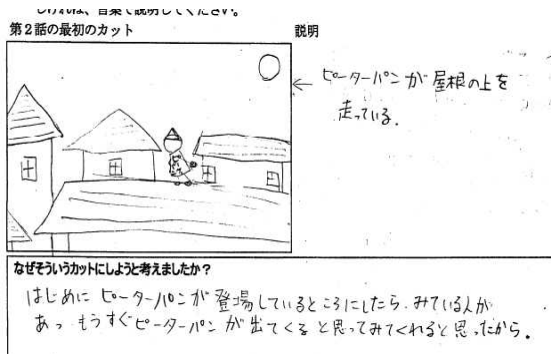 第2話の最初のカット
説明
← ピーターパンが屋根の上を
走っている.
なぜそういうカットにしようと考えましたか?
はじめにピーターパンが登場しているところにしたら、みている人が
あっ もうすぐピーターパンが出てくると思ってみてくれると思ったから.